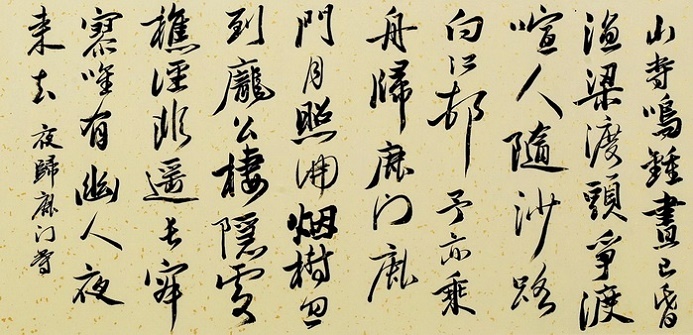 山寺鳴鍾晝已昏
漁梁渡頭爭渡
喧人隨沙路
向江邨予亦乘
舟歸鹿门鹿
門月照開烟樹忽
到龐公棲隱處
樵徑非遥長寂
寥唯有幽人夜
来去 夜歸鹿门